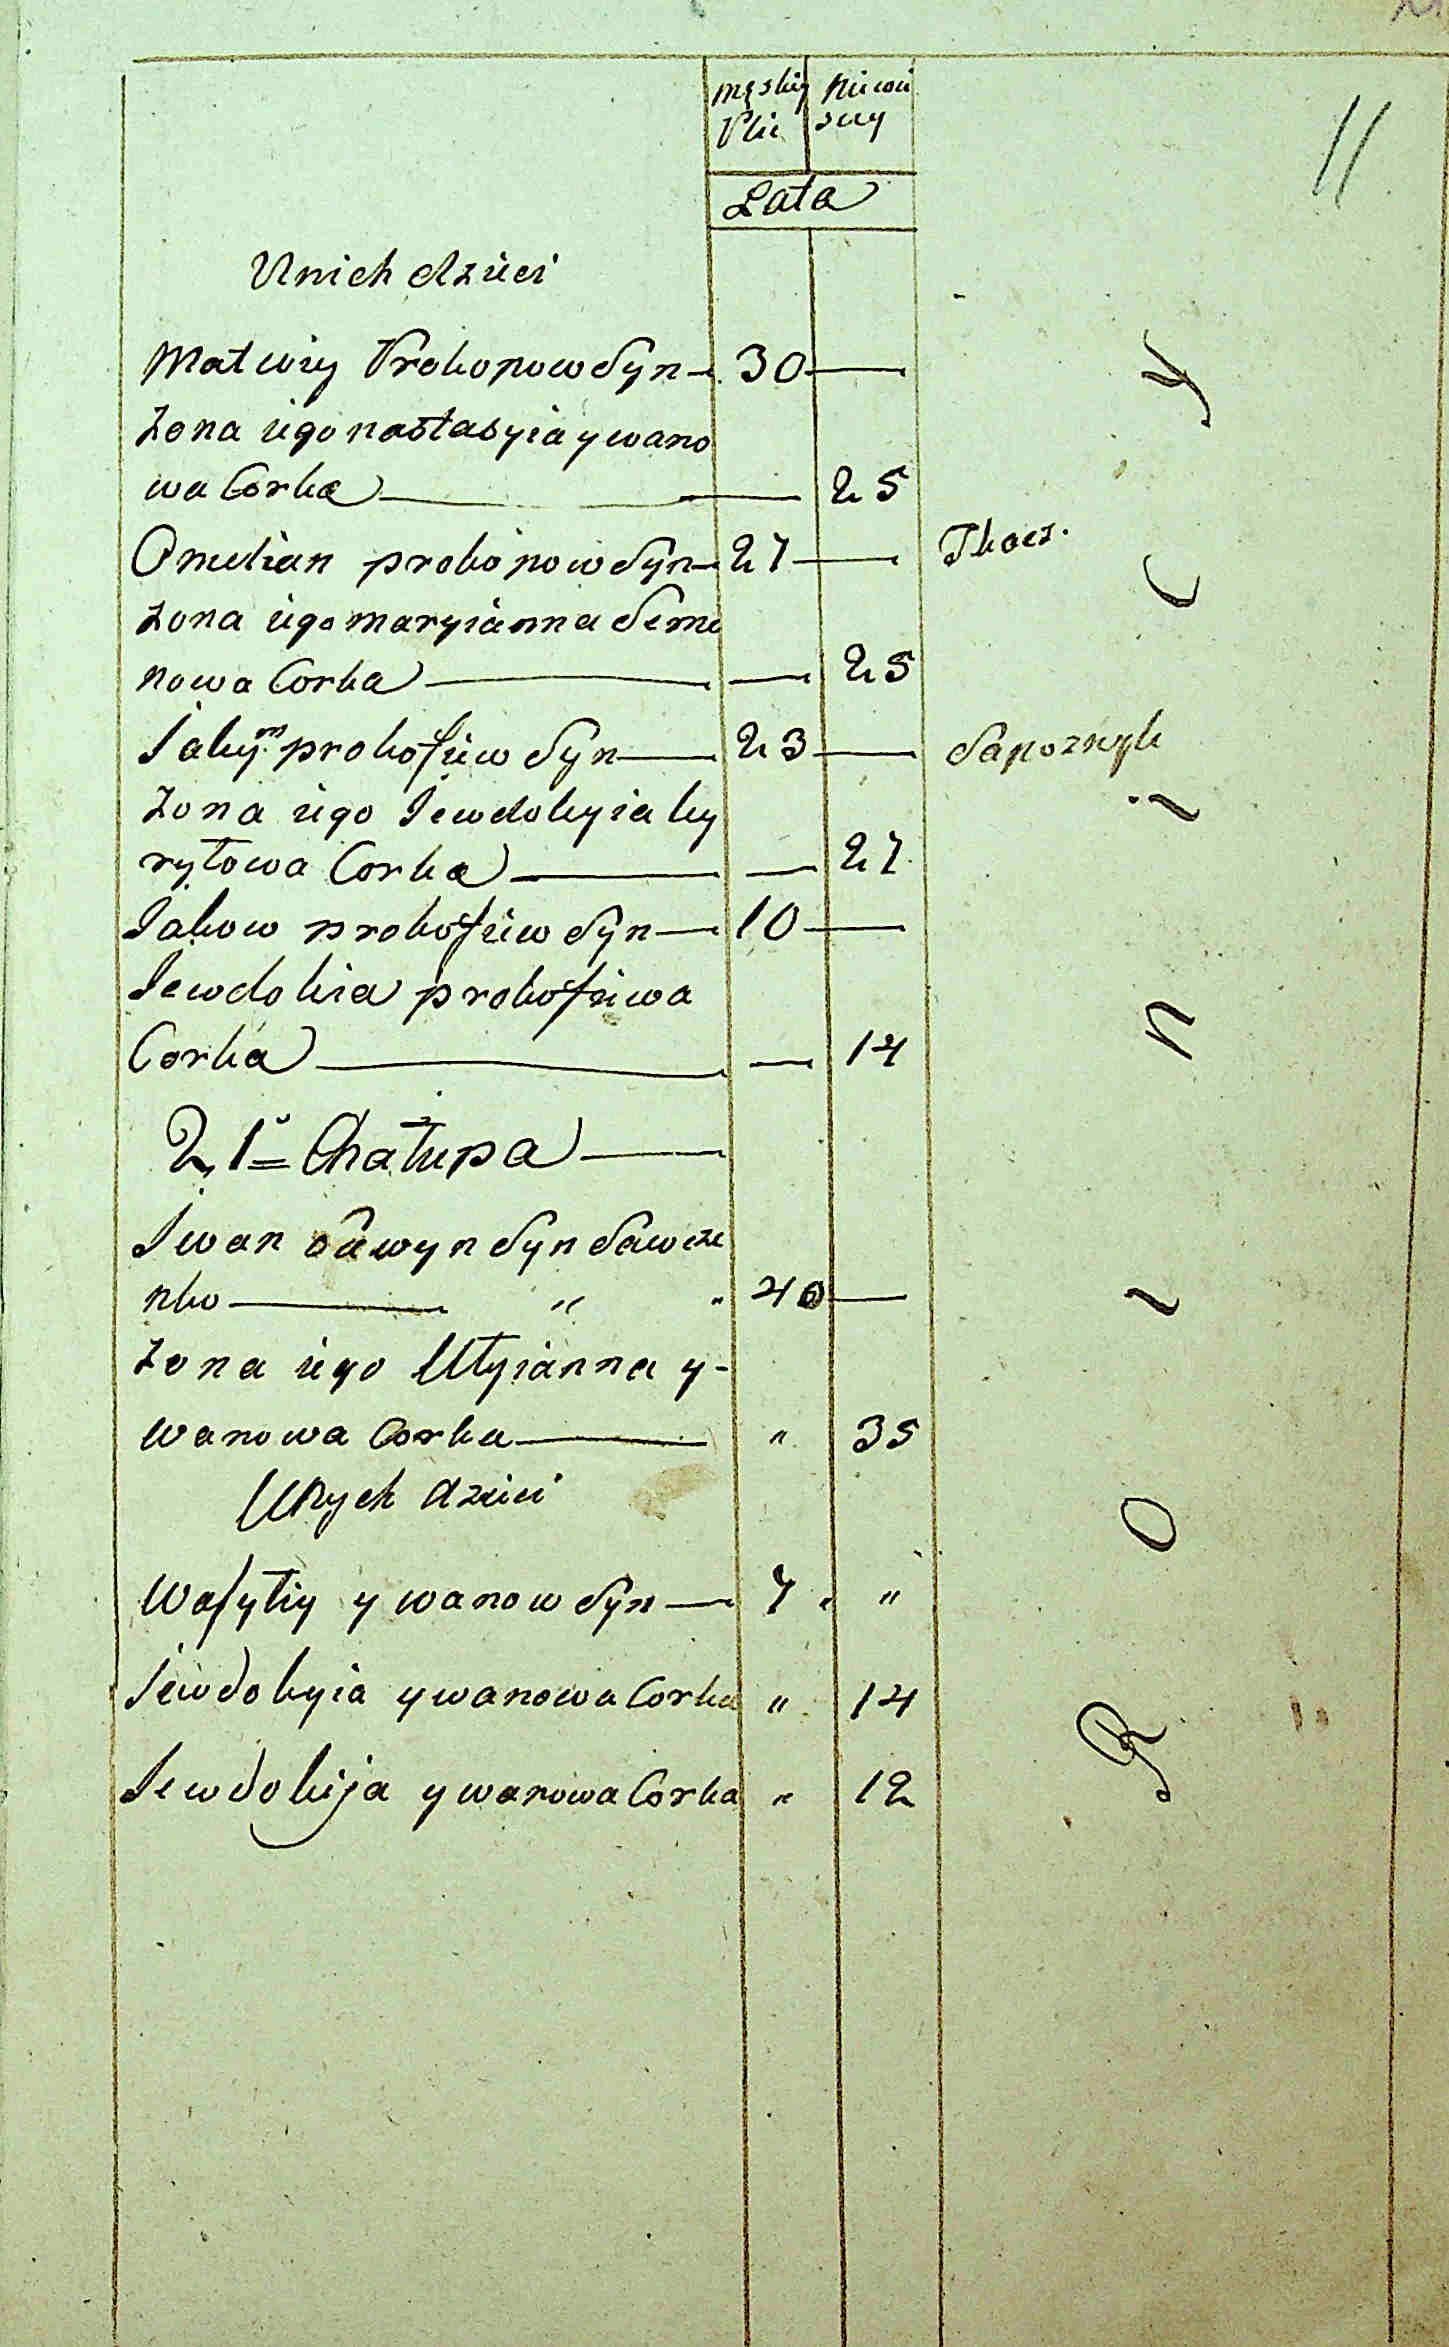 męskiey Płci
Niewiesciey
Lata
11
Unich dzieci
Matwiy Prokopow Syn 30
Zona iego nastasyia ywano
wa Corka 25
Omelian prokopow Syn 27 Tkacz.
Zona iego maryianna Seme
nowa Corka 25
Jakym prokofiew Syn 23 Sapoznyk
Zona iego Jewdokyia ky
ryłowa Corka 27
Jakow prokofiew Syn 10
Jewdokia prokofiewa
Corka 14
21ª Chałupa
Jwan Sawyn Syn Sawcze
nko " " 40
Zona iego Ulyianna y-
wanowa Corka " 35
Unych dzieci
Wasyliy ywanow Syn 7 "
Jewdokyia ywanowa Corka " 14
Jewdokija ywanowa Corka " 12